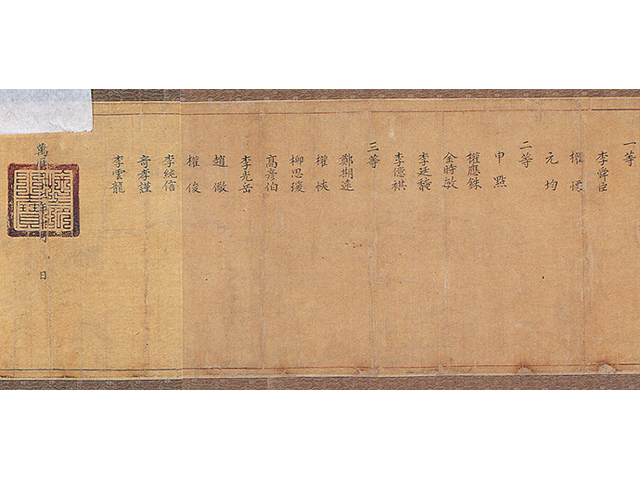 一等
李舜臣
權慄
元均
二等
申點
權應銖
金時敏
李廷馣
李億祺
三等
鄭期遠
權悏
柳思瑗
高彦伯
李光岳
趙儆
權俊
李純信
奇孝謹
李雲龍
萬曆 年 月 日